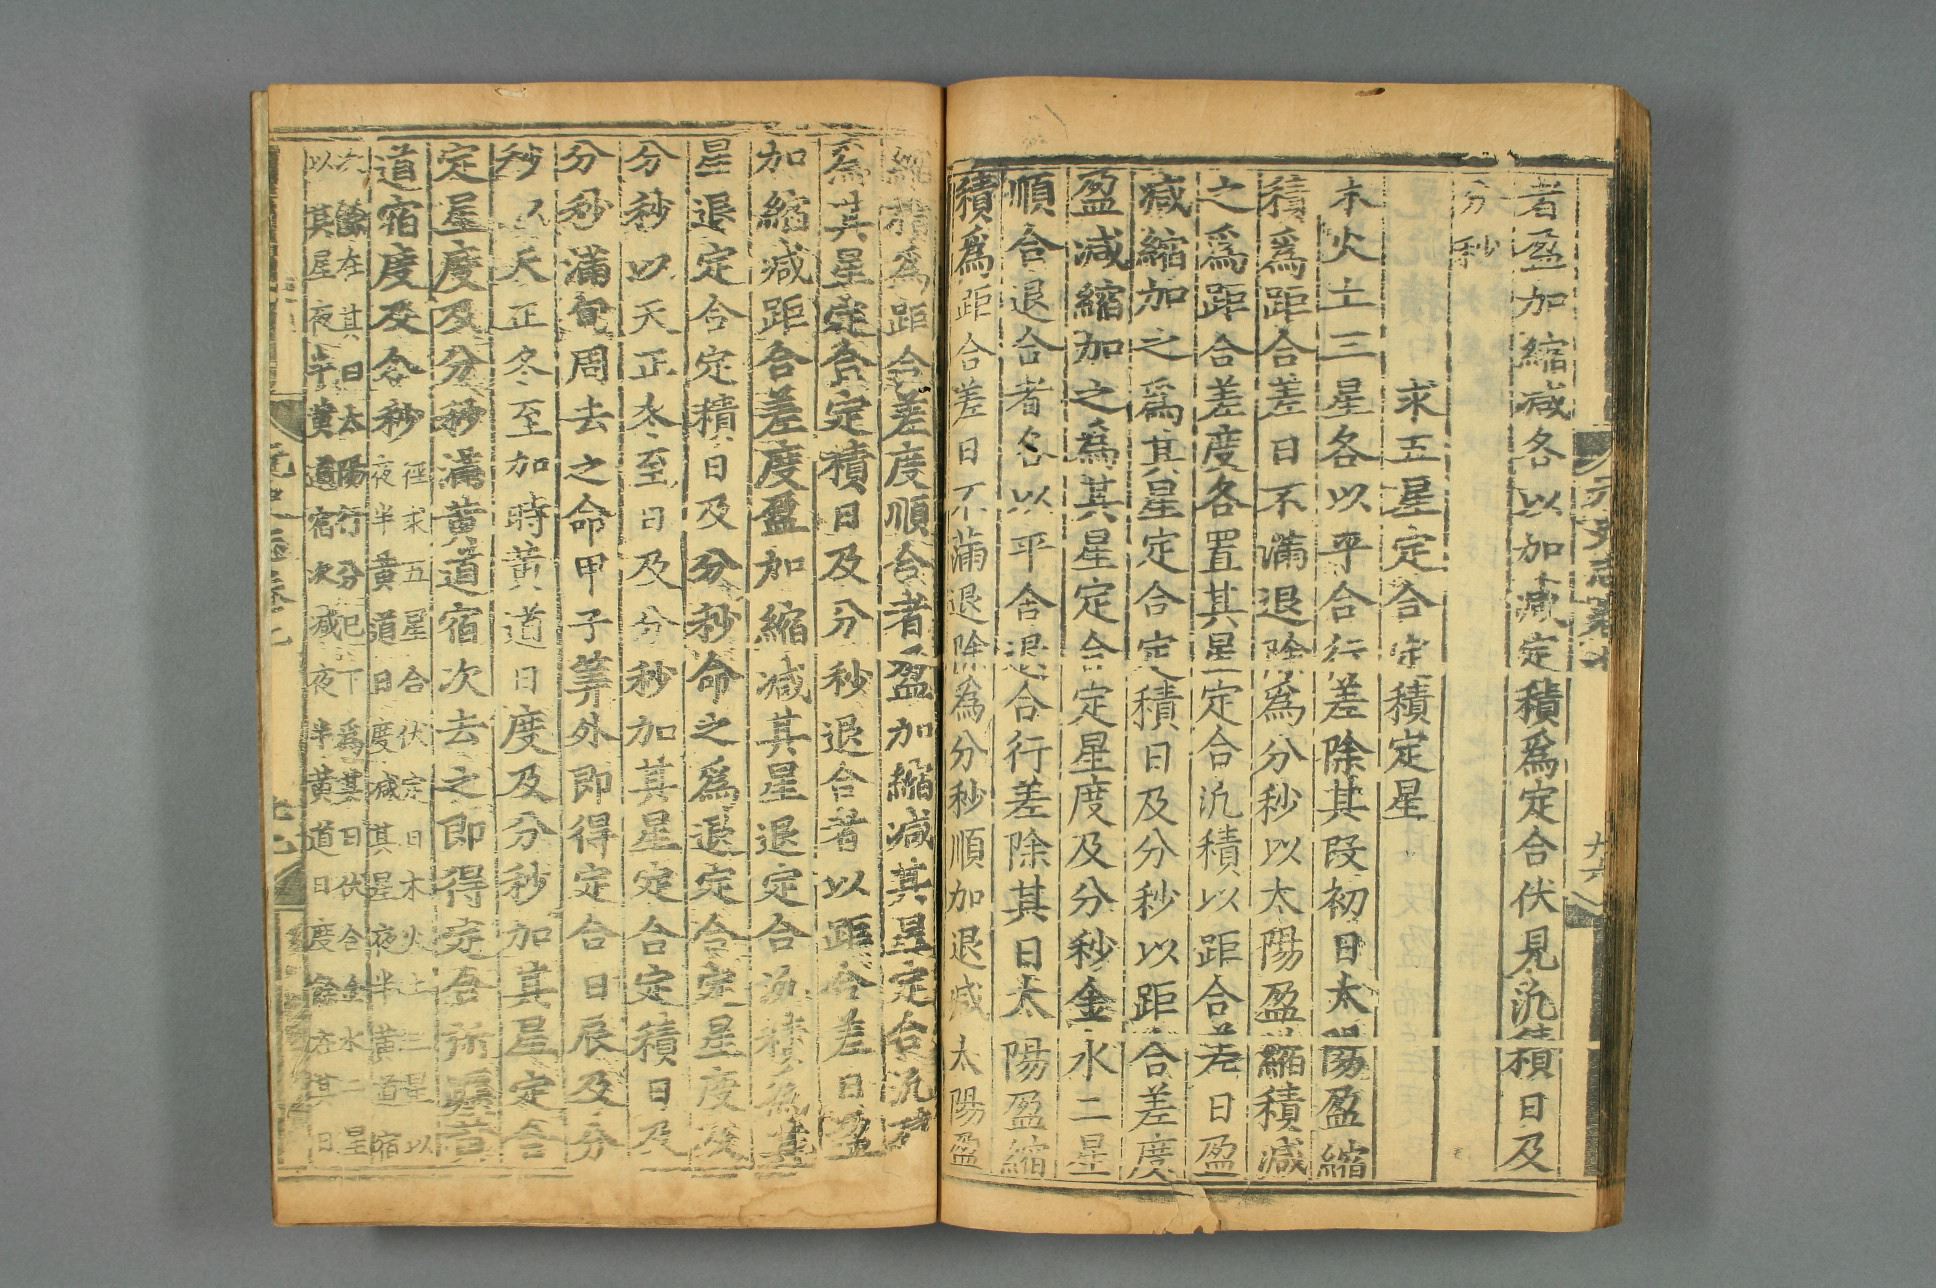 者盈加縮減各以加減定積爲定合伏見汎積日及
分秒
求五星定合定積定星
木火土三星各以平合行差除其段初日太陽盈縮
積爲距合差日不滿退除爲分秒以太陽盈縮積減
之爲距合差度各置其星定合汎積以距合差日盈
減縮加之爲其星定合定積日及分秒以距合差度
盈減縮加之爲其星定合定星度及分秒金水二星
順合退合者各以平合退合行差除其日太陽盈縮
積爲距合差日不滿退除爲分秒順加退減太陽盈
縮積爲距合差度順合者盈加縮減其星定合汎積
爲其星定合定積日及分秒退合者以距合差日盈
加縮減距合差度盈加縮減其星退定合汎積爲其
星退定合定積日及分秒命之爲退定合定星度及
分秒以天正冬至日及分秒加其星定合定積日及
分秒滿旬周去之命甲子筭外即得定合日辰及分
秒以天正冬至加時黃道日度及分秒加其星定合
定星度及分秒滿黃道宿次去之即得定合所躔黃
道宿度及分秒徑求五星合伏定日木火土三星以
夜半黃道日度減其星夜半黃道宿
次餘在其日太陽行分已下爲其日伏合金水二星
以其星夜半黃道宿次減夜半黃道日度餘在其日